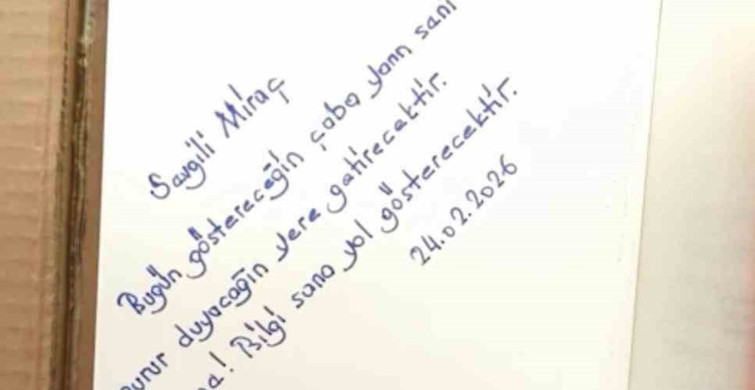 Sevgili Miraç
Bugün göstereceğin çaba yarın seni
duyacağın yere getirecektir.
Bilgi sana yol gösterecektir.
24.02.2026